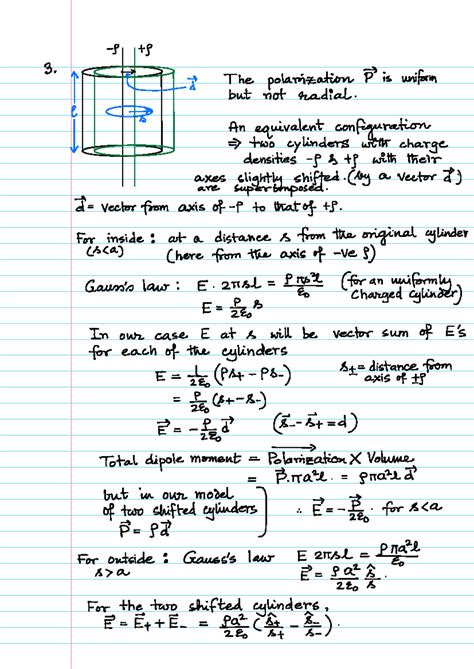 -ρ +ρ
3.
d⃗
s
l
The polarization P⃗ is uniform
but not radial.
An equivalent configuration
⇒ two cylinders with charge
densities -ρ & +ρ with their
axes slightly shifted (by a vector d⃗)
are superimposed.
d⃗ = vector from axis of -ρ to that of +ρ.
For inside : at a distance s from the original cylinder
(s<a) (here from the axis of -ve ρ)
Gauss's law : E · 2πsl = ρπs²l/ε₀ (for an uniformly
charged cylinder)
E = ρ/2ε₀ s
In our case E at s will be vector sum of E's
for each of the cylinders
E = 1/2ε₀ (ρs₊ - ρs₋) s± = distance from
axis of ±ρ
= ρ/2ε₀ (s₊ - s₋)
E⃗ = - ρ/2ε₀ d⃗ (s⃗₋ - s⃗₊ = d)
Total dipole moment = Polarization × Volume
= P⃗.πa²l = ρπa²l d⃗
but in our model
of two shifted cylinders
P⃗ = ρd⃗
∴ E⃗ = - P⃗/2ε₀ for s<a
For outside : Gauss's law E 2πsl = ρπa²l/ε₀
s>a
E⃗ = ρa²/2ε₀ ŝ/s
For the two shifted cylinders,
E⃗ = E⃗₊ + E⃗₋ = ρa²/2ε₀ (ŝ₊/s₊ - ŝ₋/s₋).